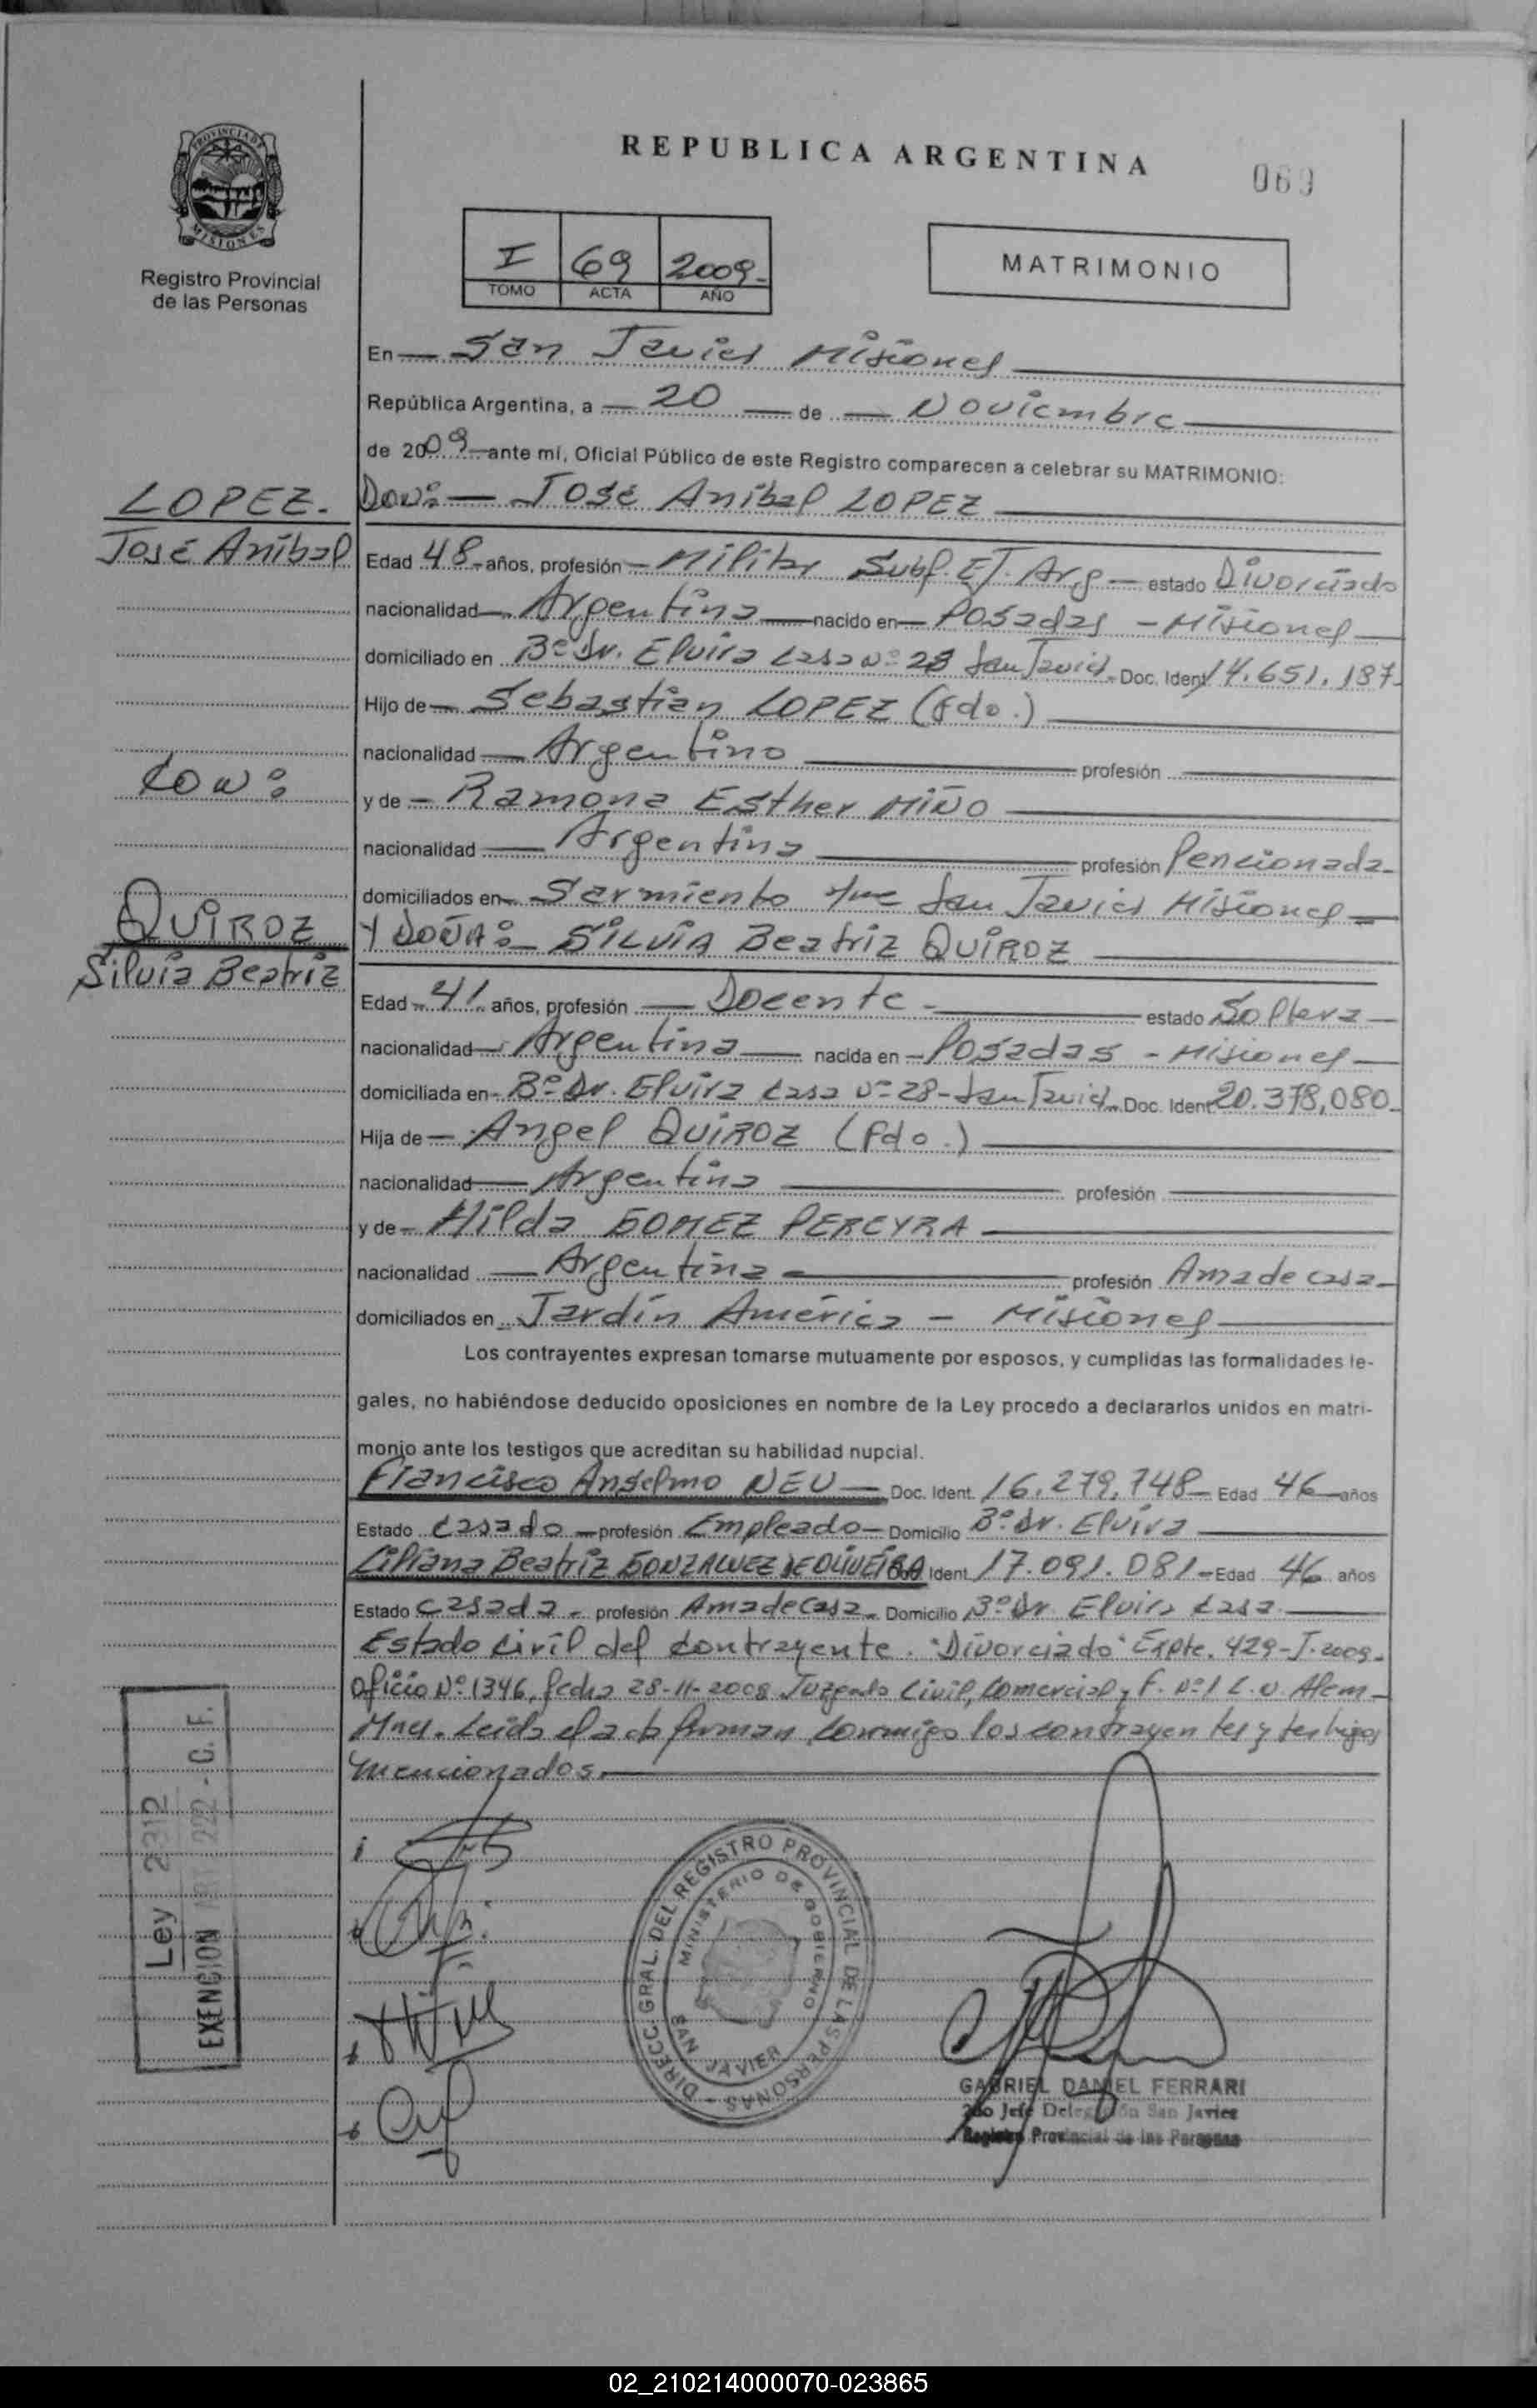 PROVINCIA DE
MISIONES
Registro Provincial
de las Personas
REPUBLICA ARGENTINA
069
I 69 2009.-
TOMO ACTA AÑO
MATRIMONIO
En San Javier Misiones
República Argentina, a 20 de Noviembre
de 2009 ante mí, Oficial Público de este Registro comparecen a celebrar su MATRIMONIO:
LOPEZ.
José Aníbal
Don: José Aníbal LOPEZ
Edad 48 años, profesión Militar Subf. Ej. Arg estado Divorciado
nacionalidad Argentina nacido en Posadas - Misiones
domiciliado en Bº Dr. Elvira Casa Nº 28 San Javier Doc. Ident 14.651.187
Hijo de Sebastian LOPEZ (fdo.)
nacionalidad Argentino profesión
Con:
y de Ramona Esther MIÑO
nacionalidad Argentina profesión Pencionada
domiciliados en Sarmiento San Javier Misiones
QUIROZ
Silvia Beatriz
Y DOÑA: SILVIA Beatriz QUIROZ
Edad 41 años, profesión Docente estado Soltera
nacionalidad Argentina nacida en Posadas - Misiones
domiciliada en Bº Dr. Elvira Casa Nº 28 - San Javier Doc. Ident 20.378.080
Hija de Angel QUIROZ (fdo.)
nacionalidad Argentina profesión
y de Hilda GOMEZ PEREYRA
nacionalidad Argentina profesión Ama de casa
domiciliados en Jardín América - Misiones
Los contrayentes expresan tomarse mutuamente por esposos, y cumplidas las formalidades le-
gales, no habiéndose deducido oposiciones en nombre de la Ley procedo a declararlos unidos en matri-
monio ante los testigos que acreditan su habilidad nupcial.
Francisco Anselmo NEU Doc. Ident. 16.279.748 Edad 46 años
Estado Casado profesión Empleado Domicilio Bº Dr. Elvira
Liliana Beatriz GONZALVEZ DE OLIVEIRA Ident. 17.091.081 Edad 46 años
Estado Casada profesión Ama de Casa Domicilio Bº Dr. Elvira Casa
Estado Civil del Contrayente. "Divorciado" Expte. 429-J-2009.
Oficio Nº 1346, fecha 28-11-2008 Juzgado Civil, Comercial y F. Nº 1 L.N. Alem -
Mnes. Leída el acta firman conmigo los contrayentes y testigos
mencionados.
Ley 2312
EXENCION ART 222 - C. F.
DIRECC. GRAL. DEL REGISTRO PROVINCIAL DE LAS PERSONAS
MINISTERIO DE GOBIERNO
SAN JAVIER
GABRIEL DANIEL FERRARI
2do Jefe Delegación San Javier
Registro Provincial de las Personas
02_210214000070-023865